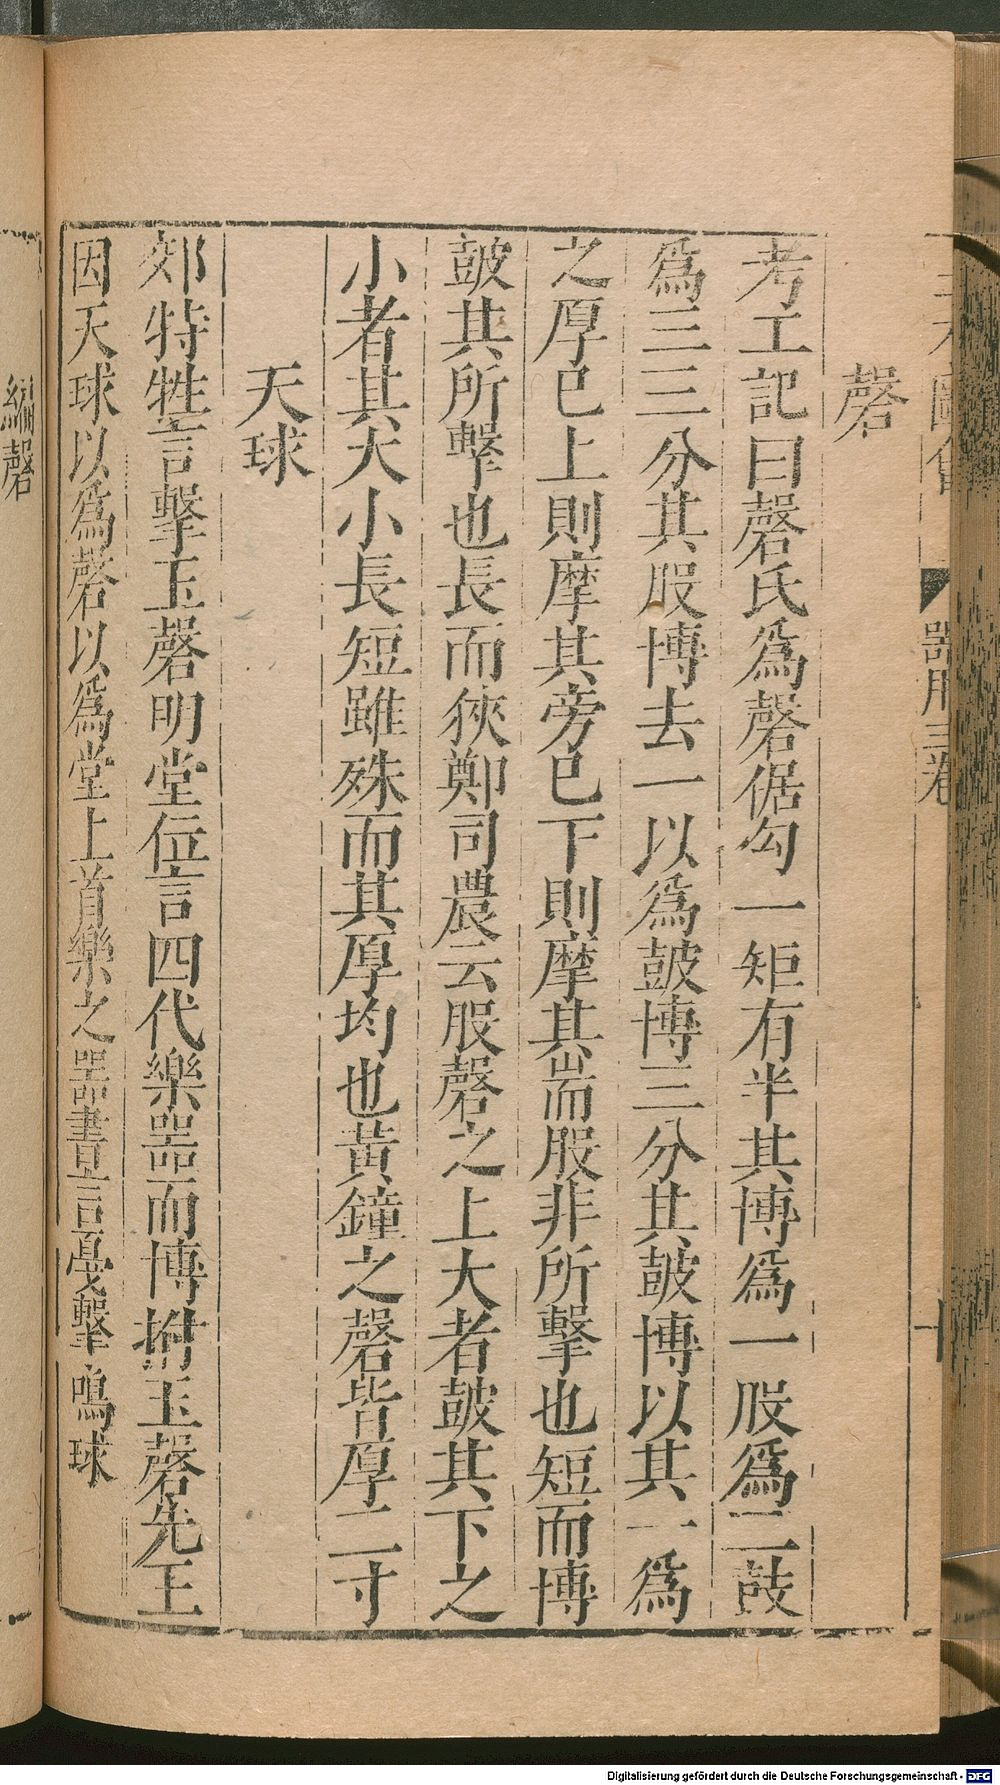 三才圖會 器用三卷 十
磬
考工記曰磬氏爲磬倨勾一矩有半其博爲一股爲二鼓
爲三三分其股博去一以爲鼓博三分其鼓博以其一爲
之厚已上則摩其旁已下則摩其耑股非所擊也短而博
鼓其所擊也長而狹鄭司農云股磬之上大者鼓其下之
小者其大小長短雖殊而其厚均也黃鐘之磬皆厚二寸
天球
郊特牲言擊玉磬明堂位言四代樂噐而博拊玉磬先王
因天球以爲磬以爲堂上首樂之噐書言戞擊鳴球
編磬
Digitalisierung gefördert durch die Deutsche Forschungsgemeinschaft - DFG